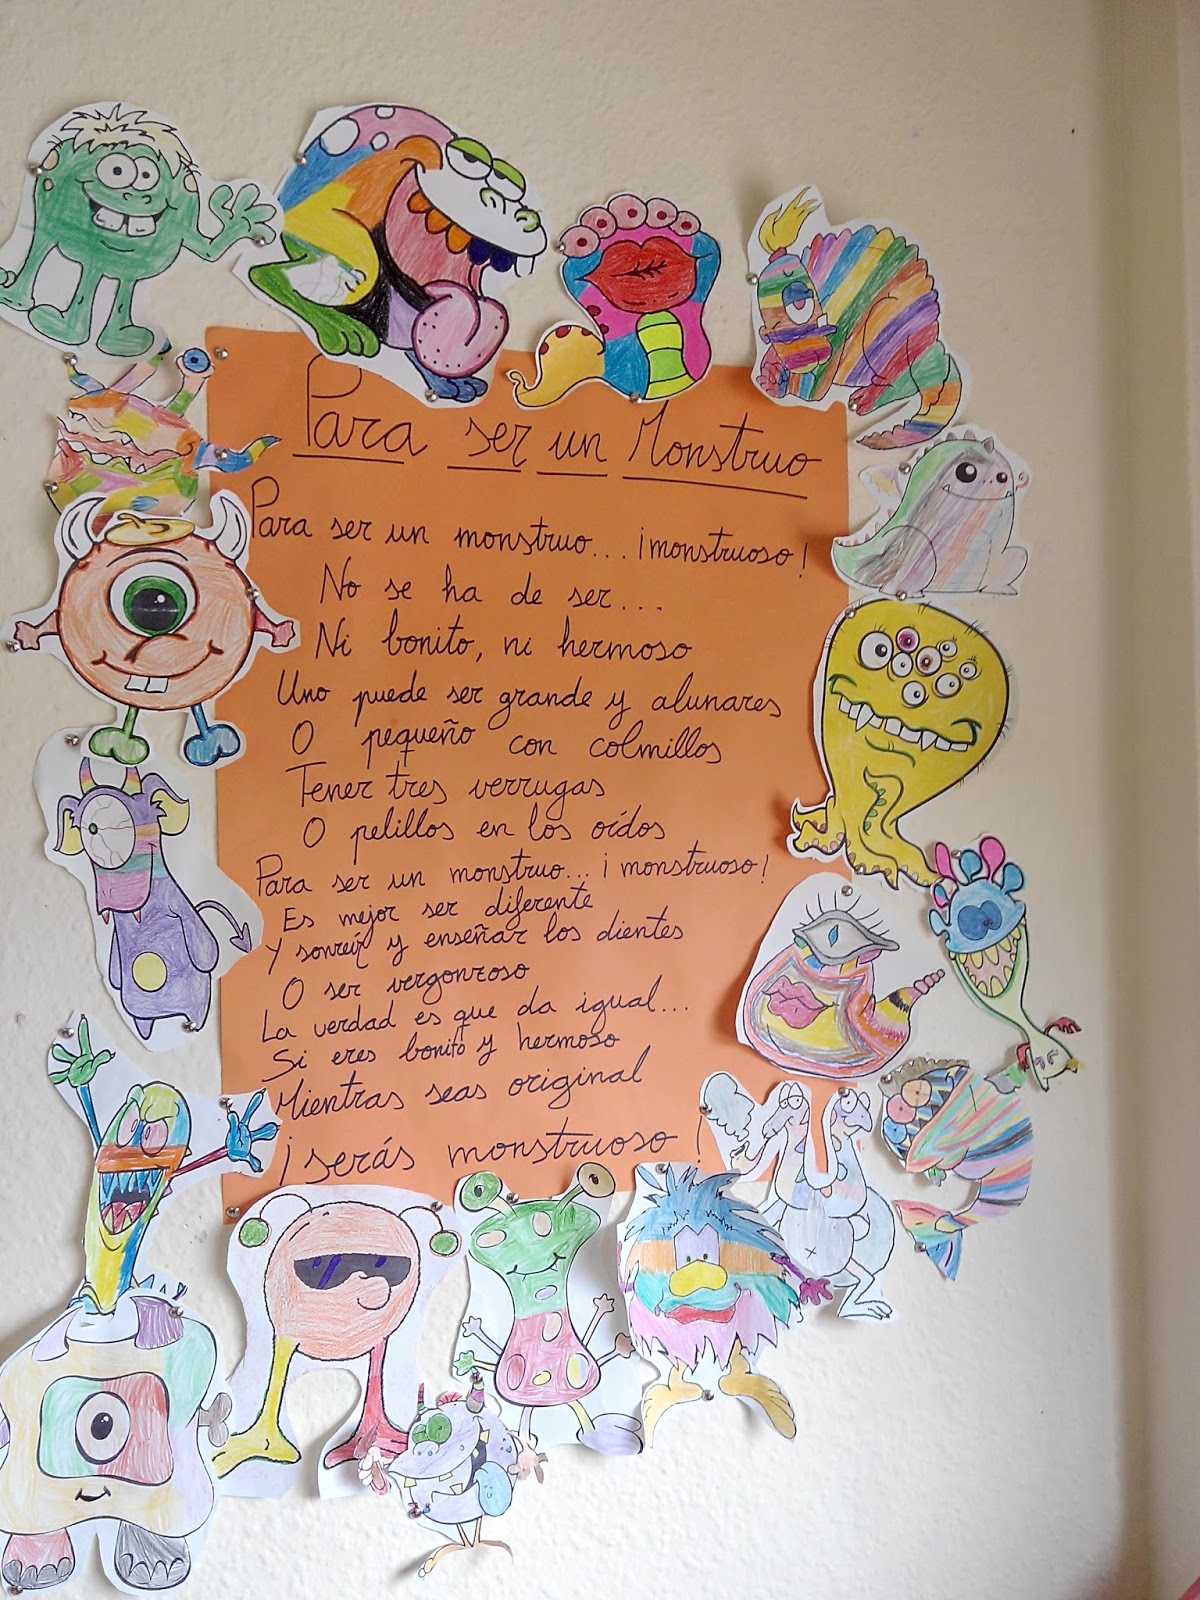 Para ser un Monstruo
Para ser un monstruo... ¡monstruoso!
No se ha de ser...
Ni bonito, ni hermoso
Uno puede ser grande y alunares
O pequeño con colmillos
Tener tres verrugas
O pelillos en los oídos
Para ser un monstruo... ¡monstruoso!
Es mejor ser diferente
Y sonreír y enseñar los dientes
O ser vergonzoso
La verdad es que da igual...
Si eres bonito y hermoso
Mientras seas original
¡serás monstruoso!